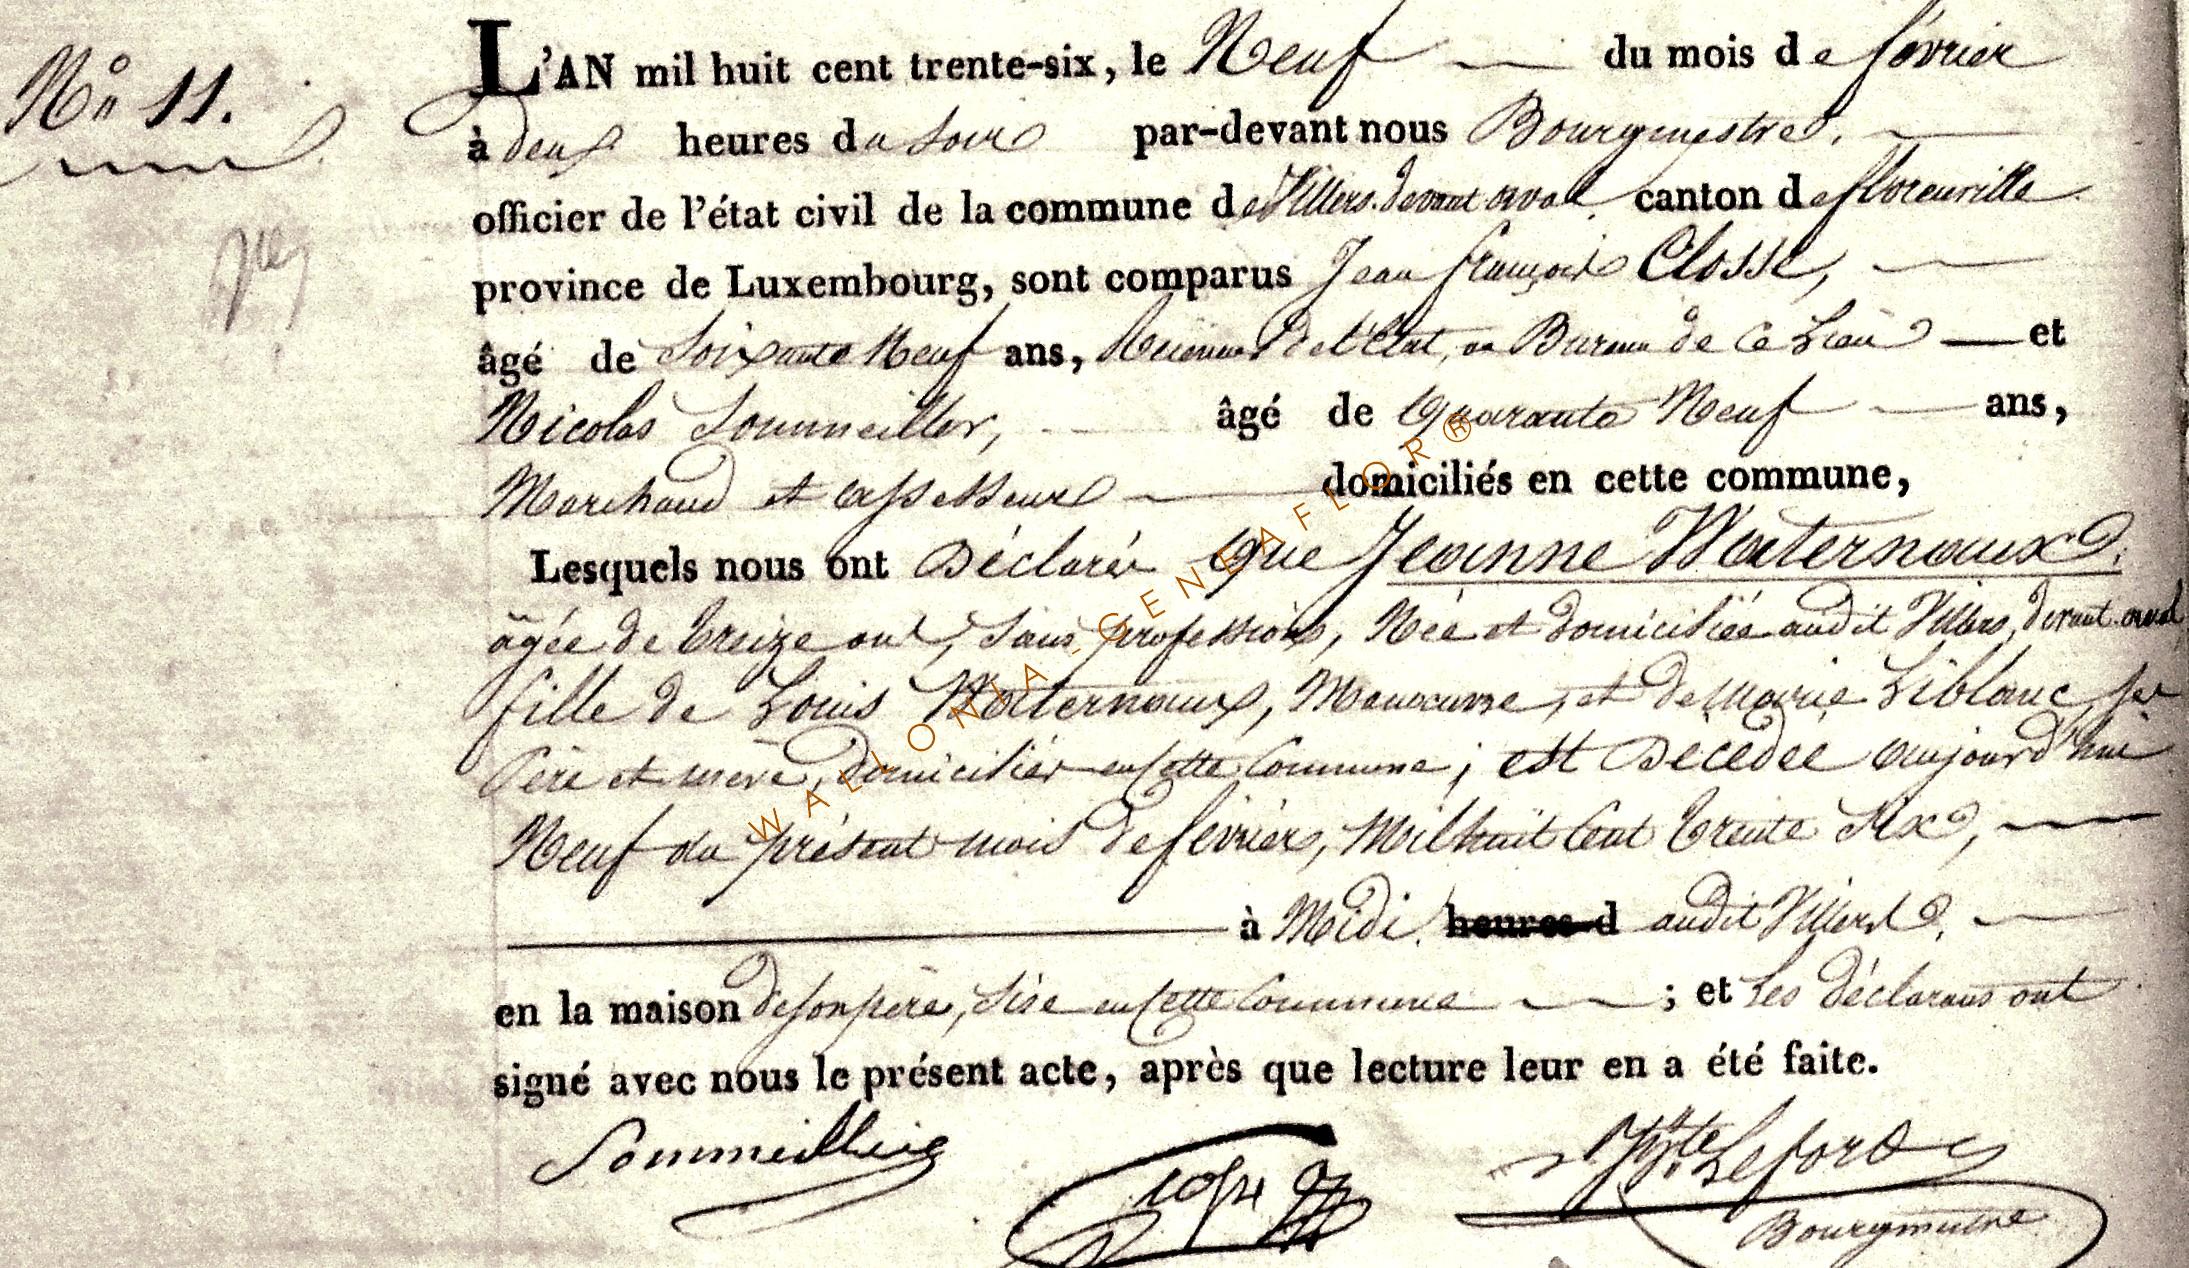 N° 11.
L'AN mil huit cent trente-six, le Neuf du mois de février
à deux heures du Soir par-devant nous Bourgmestre.
officier de l'état civil de la commune de Villers devant orval. canton de florenville
province de Luxembourg, sont comparus Jean françois Closse,
âgé de Soixante Neuf ans, de l'Etat, au Bureau de Ce Lieu et
Nicolas Sommeiller, âgé de Quarante Neuf ans,
Marchand et assesseur domiciliés en cette commune,
Lesquels nous ont Déclaré Que Jeanne Waternaux.
âgée de treize ans, Sans profession, Née et domiciliée audit Villers, devant orval
fille de Louis Waternaux, Manœuvre, et de Marie Liblanc, ses
Père et mère, domiciliés en Cette Commune; est Décédée aujourd'hui
Neuf du présent mois de février, Mil huit Cent trente Six,
à Midi. heures d audit Villers.
en la maison de son père, Sise en Cette Commune ; et Les déclarans ont
signé avec nous le présent acte, après que lecture leur en a été faite.
Sommeillier
Closse
Hte Lefort
Bourgmestre
WALLONIA - GENEAFLOR®